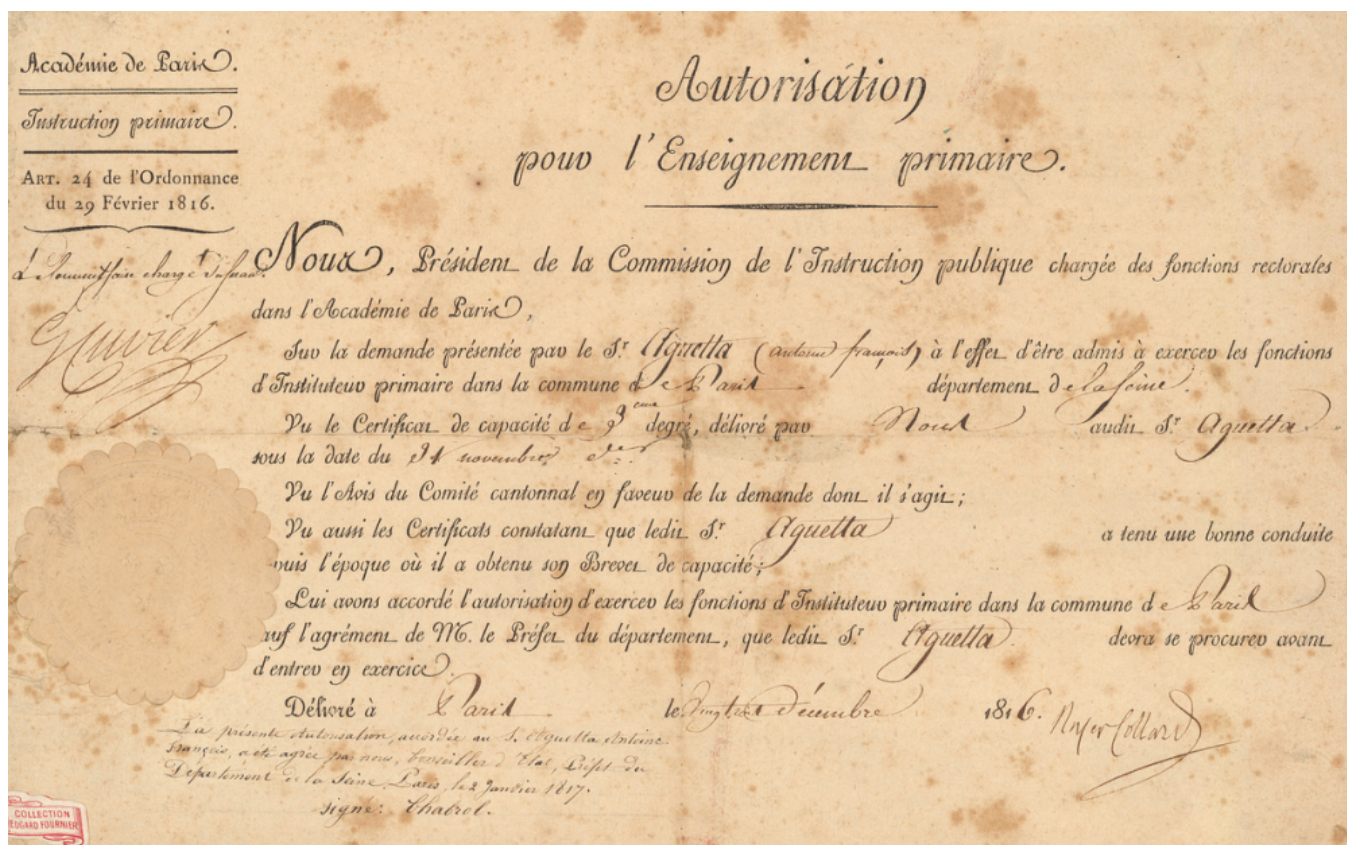 Académie de Paris.
Instruction primaire.
ART. 24 de l'Ordonnance
du 29 Février 1816.
Autorisation
pour l'Enseignement primaire.
Nous, Président de la Commission de l'Instruction publique chargée des fonctions rectorales
dans l'Académie de Paris,
Sur la demande présentée par le Sr. Aguetta (antoine françois) à l'effet d'être admis à exercer les fonctions
d'Instituteur primaire dans la commune de Paris département de la Seine.
Vu le Certificat de capacité de 3eme degré, délivré par Nous audit Sr. Aguetta
sous la date du novembre
Vu l'Avis du Comité cantonnal en faveur de la demande dont il s'agit;
Vu aussi les Certificats constatant que ledit Sr. Aguetta a tenu une bonne conduite
puis l'époque où il a obtenu son Brevet de capacité;
Lui avons accordé l'autorisation d'exercer les fonctions d'Instituteur primaire dans la commune de Paris
auf l'agrément de M. le Préfet du département, que ledit Sr. Aguetta devra se procurer avant
d'entrer en exercice.
Délivré à Paris le décembre 1816.
Royer Collard
chargé du
Cuvier
La présente Autorisation, accordée au S. Aguetta Antoine
François, a été agréé par nous, Conseiller d'Etat, Préfet du
Département de la Seine. Paris, le 2 Janvier 1817.
signé: Chabrol.
COLLECTION
EDGARD FOURNIER